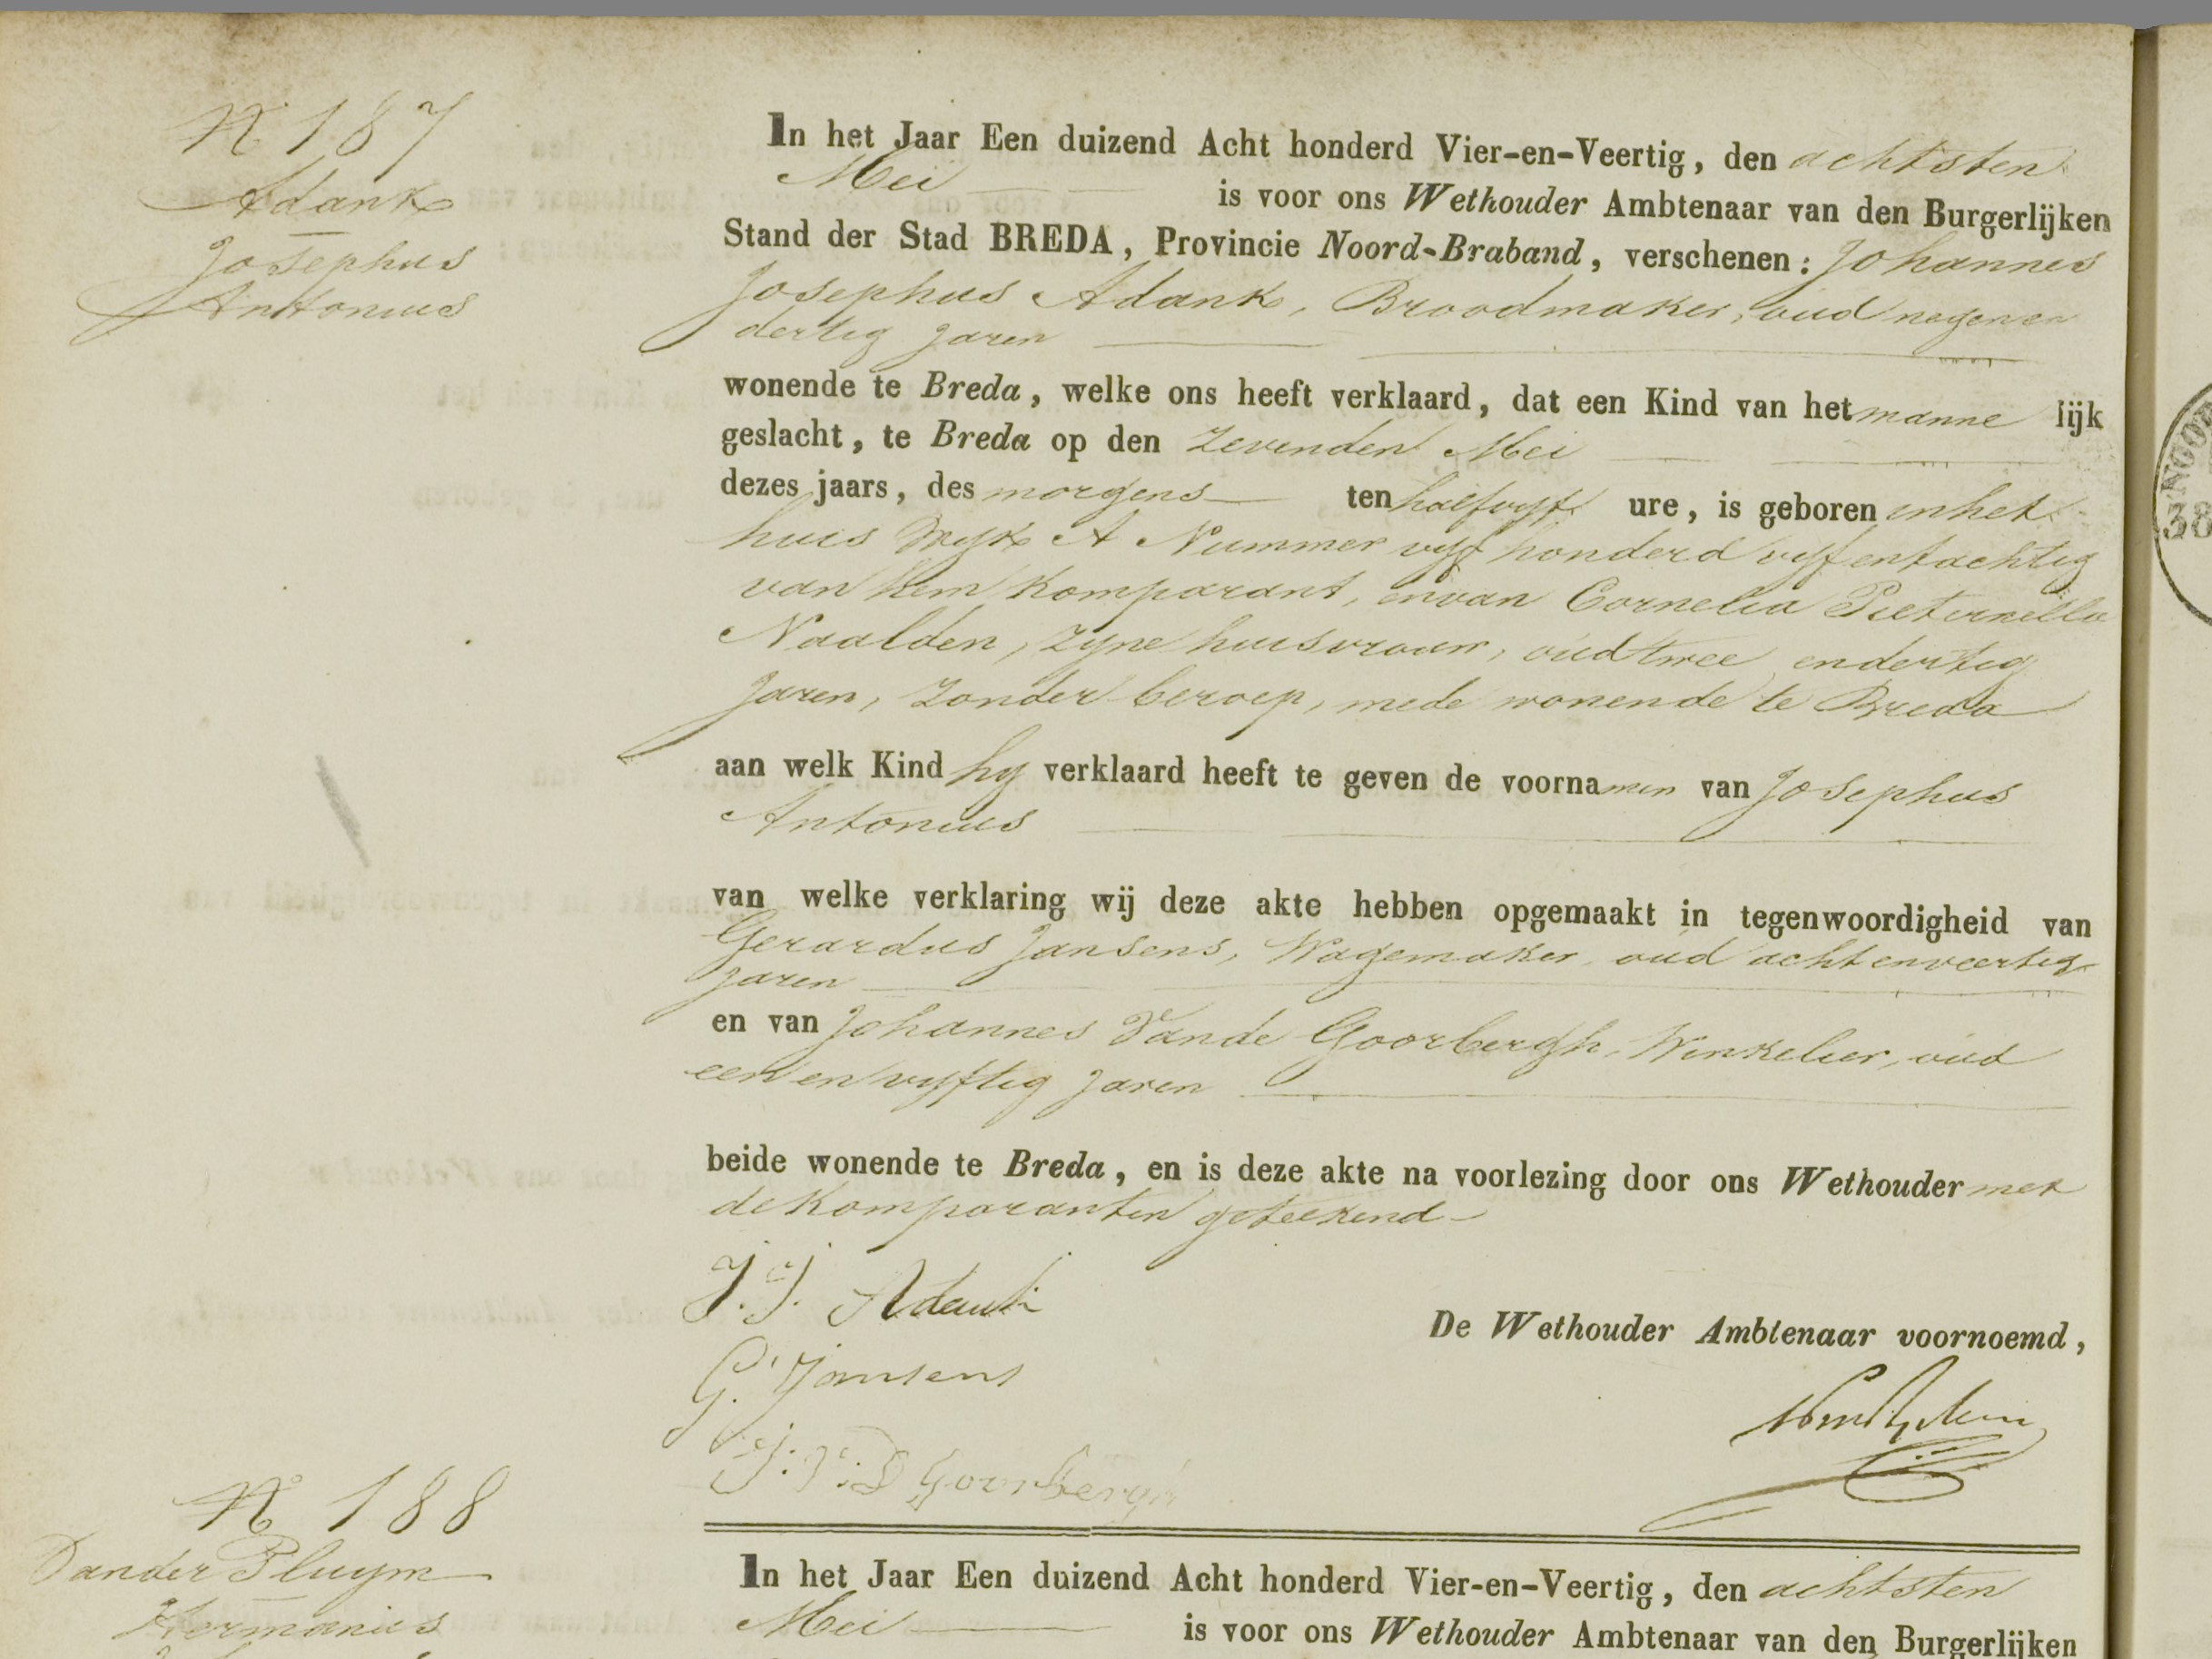 N° 187
Adank
Josephus
Antonius
In het Jaar Een duizend Acht honderd Vier-en-Veertig, den achtsten
Mei is voor ons Wethouder Ambtenaar van den Burgerlijken
Stand der Stad BREDA, Provincie Noord-Braband, verschenen: Johannes
Josephus Adank, Broodmaker, oud negen en
dertig jaren
wonende te Breda, welke ons heeft verklaard, dat een Kind van het manne lijk
geslacht, te Breda op den zevenden Mei
dezes jaars, des morgens ten half vyf ure, is geboren in het
huis Wyk A Nummer vyf honderd vyf en tachtig
van hem komparant, en van Cornelia Pieternella
Naalden, zyne huisvrouw, oud twee en dertig
jaren, zonder beroep, mede wonende te Breda
aan welk Kind hy verklaard heeft te geven de voornamen van Josephus
Antonius
van welke verklaring wij deze akte hebben opgemaakt in tegenwoordigheid van
Gerardus Jansens, Wagemaker, oud acht en veertig
jaren
en van Johannes Van de Goorbergh, Winkelier, oud
een en vyftig jaren
beide wonende te Breda, en is deze akte na voorlezing door ons Wethouder met
de komparanten geteekend
J. J. Adank
De Wethouder Ambtenaar voornoemd,
G. Jansens
J. V. D Goorbergh
N° 188
Van der Pluym
Hermanus
In het Jaar Een duizend Acht honderd Vier-en-Veertig, den achtsten
Mei is voor ons Wethouder Ambtenaar van den Burgerlijken
NOOR
38